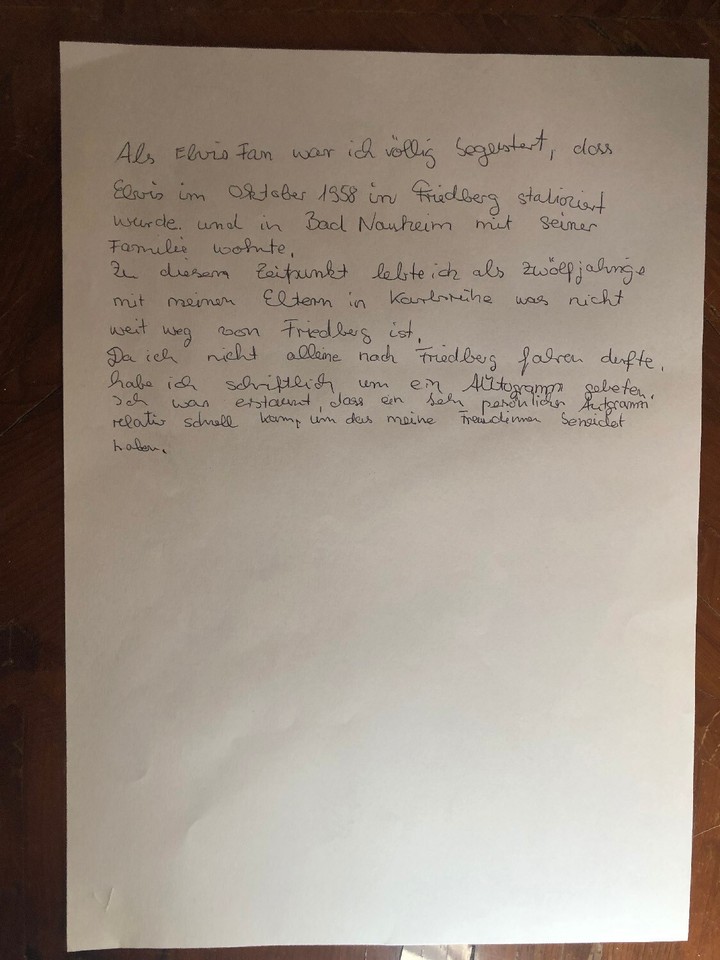 Als Elvis Fan war ich völlig begeistert, dass
Elvis im Oktober 1958 in Friedberg stationiert
wurde. und in Bad Nauheim mit seiner
Familie wohnte.
Zu diesem Zeitpunkt lebte ich als zwölfjährige
mit meinen Eltern in Karlsruhe was nicht
weit weg von Friedberg ist.
Da ich nicht alleine nach Friedberg fahren durfte,
habe ich schriftlich um ein Autogramm gebeten.
Ich war erstaunt, dass ein sehr persönliches Autogramm
relativ schnell kam, um das meine Freundinnen beneidet
haben.